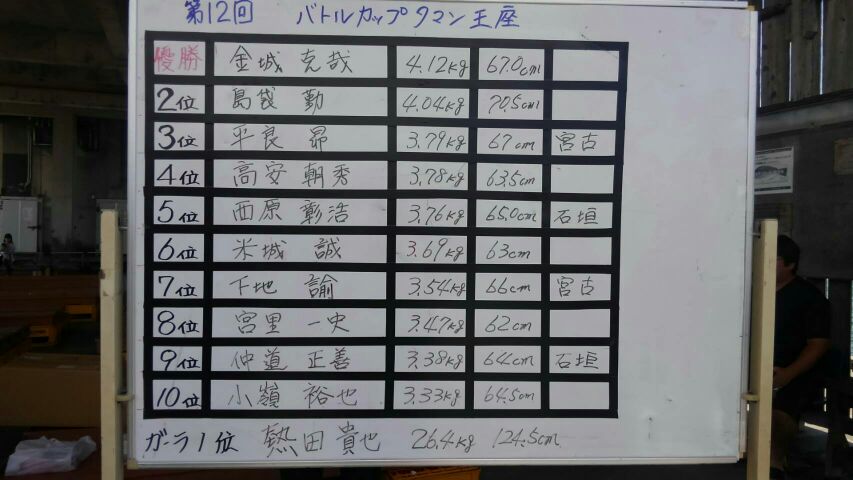 第12回 バトルカップタマン王座
優勝 金城 克哉 4.12kg 67.0cm
2位 島袋 勤 4.04kg 70.5cm
3位 平良 昴 3.79kg 67cm 宮古
4位 高安 朝秀 3.78kg 63.5cm
5位 西原 彰浩 3.76kg 65.0cm 石垣
6位 米城 誠 3.69kg 63cm
7位 下地 諭 3.54kg 66cm 宮古
8位 宮里 一史 3.47kg 62cm
9位 仲道 正善 3.38kg 64cm 石垣
10位 小嶺 裕也 3.33kg 64.5cm
ガーラ1位 熱田貴也 26.4kg 124.5cm